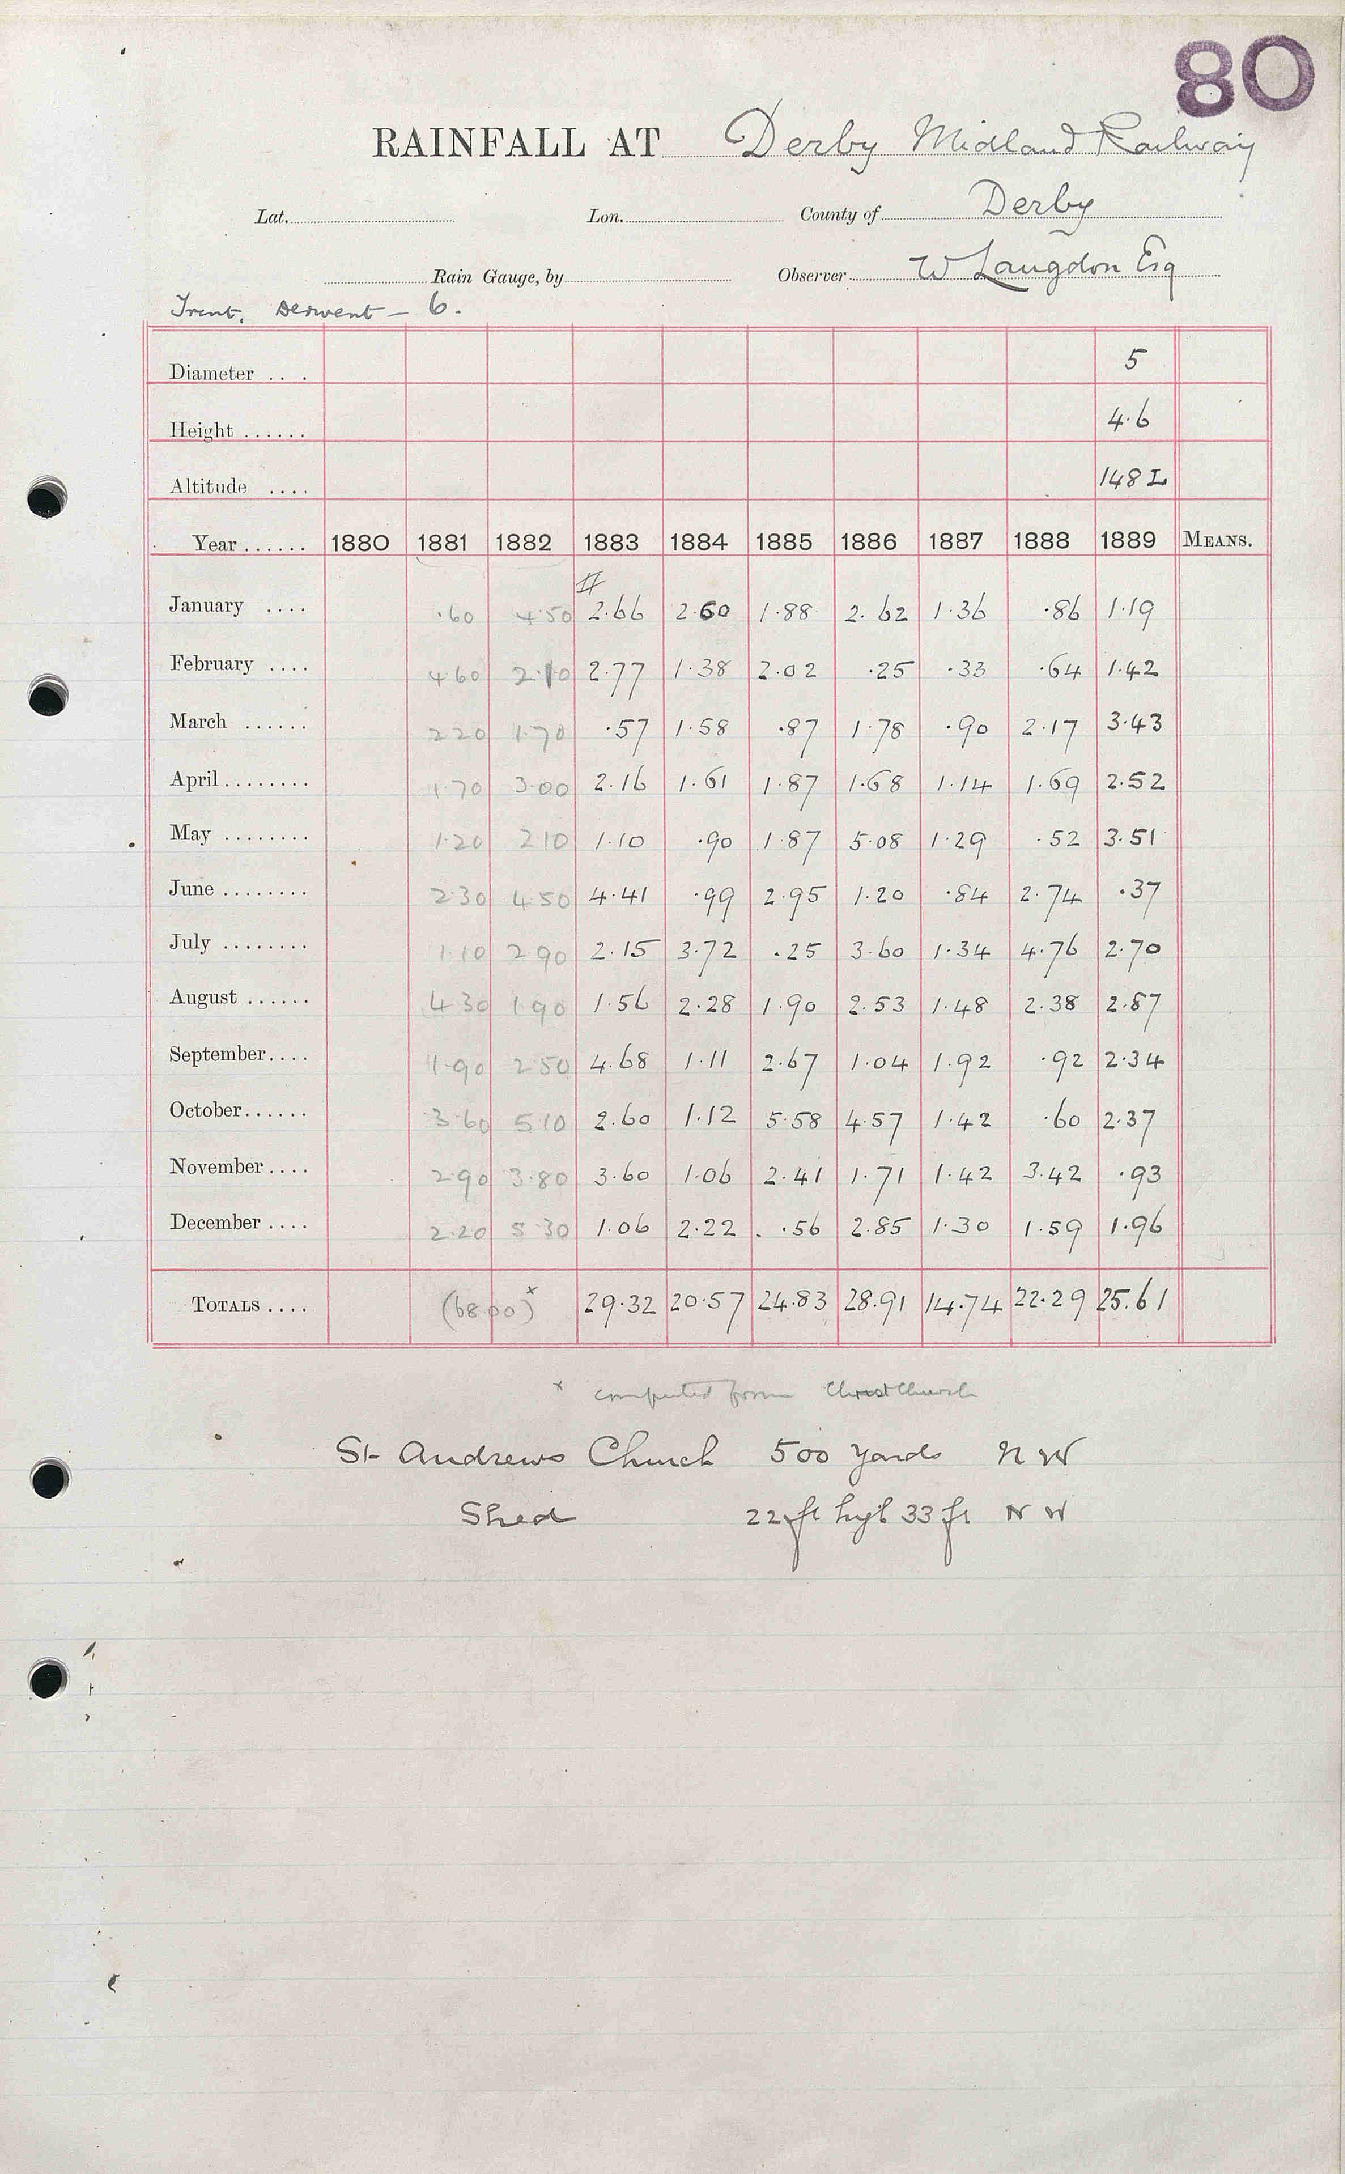 80
RAINFALL AT Derby Midland Railway
Lat. Lon. County of Derby
Rain Gauge, by Observer W Langdon Esq
Trent. Derwent — 6.
Diameter .. . 5
Height ...... 4.6
Altitude .... 148 L
Year ...... 1880 1881 1882 1883 1884 1885 1886 1887 1888 1889 MEANS.
#
January .... .60 4.50 2.66 2.60 1.88 2.62 1.36 .86 1.19
February .... 4.60 2.10 2.77 1.38 2.02 .25 .33 .64 1.42
March ...... 2.20 1.70 .57 1.58 .87 1.78 .90 2.17 3.43
April ........ 1.70 3.00 2.16 1.61 1.87 1.68 1.14 1.69 2.52
May ........ 1.20 2.10 1.10 .90 1.87 5.08 1.29 .52 3.51
June ........ 2.30 4.50 4.41 .99 2.95 1.20 .84 2.74 .37
July ........ 1.10 2.90 2.15 3.72 .25 3.60 1.34 4.76 2.70
August ...... 4.30 1.90 1.56 2.28 1.90 2.53 1.48 2.38 2.87
September.... 1.90 2.50 4.68 1.11 2.67 1.04 1.92 .92 2.34
October...... 3.60 5.10 2.60 1.12 5.58 4.57 1.42 .60 2.37
November .... 2.90 3.80 3.60 1.06 2.41 1.71 1.42 3.42 .93
December .... 2.20 5.30 1.06 2.22 .56 2.85 1.30 1.59 1.96
TOTALS .... (68.00)x 29.32 20.57 24.83 28.91 14.74 22.29 25.61
x computed from Christchurch
St Andrews Church 500 yards N W
Shed 22 ft high 33 ft N W